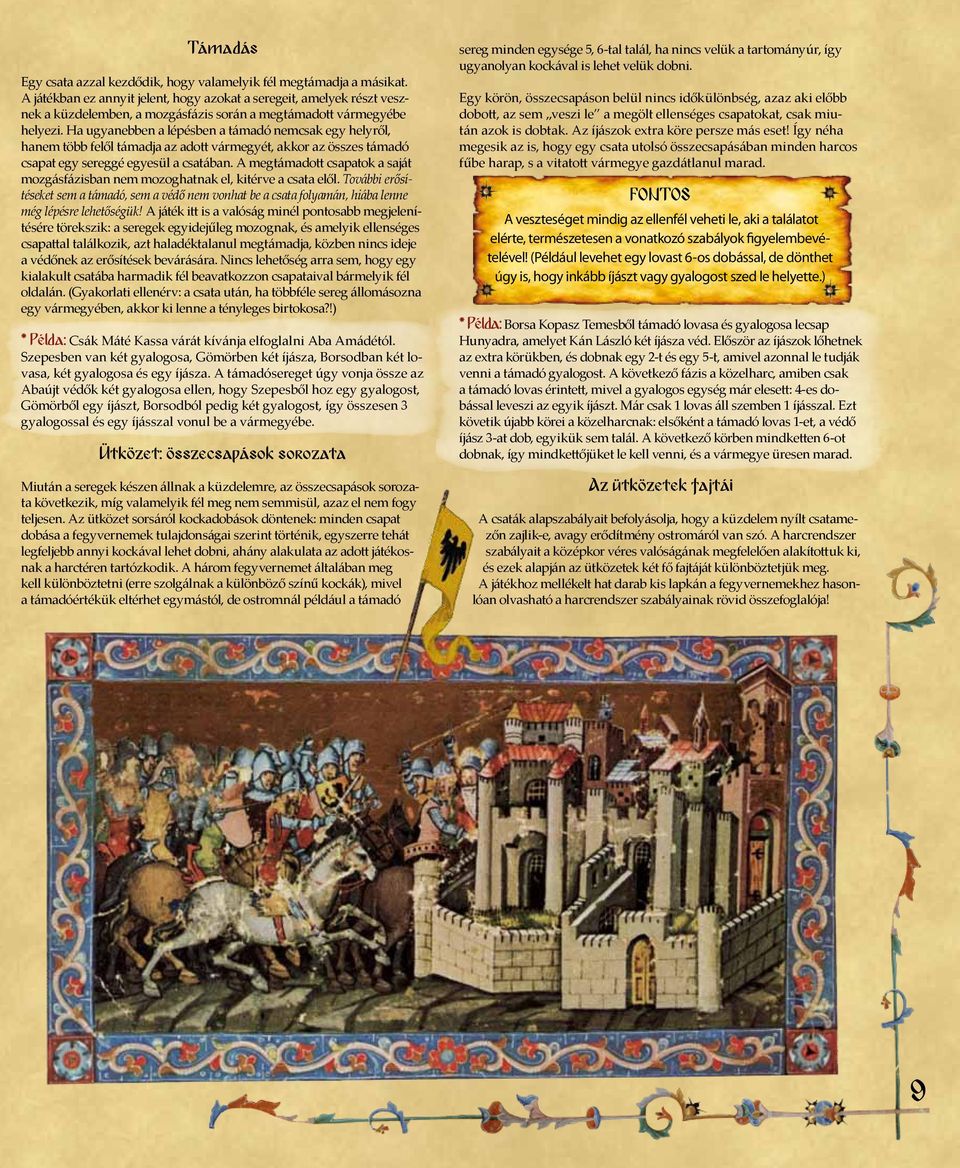 Támadás
Egy csata azzal kezdődik, hogy valamelyik fél megtámadja a másikat.
A játékban ez annyit jelent, hogy azokat a seregeit, amelyek részt vesz-
nek a küzdelemben, a mozgásfázis során a megtámadott vármegyébe
helyezi. Ha ugyanebben a lépésben a támadó nemcsak egy helyről,
hanem több felől támadja az adott vármegyét, akkor az összes támadó
csapat egy sereggé egyesül a csatában. A megtámadott csapatok a saját
mozgásfázisban nem mozoghatnak el, kitérve a csata elől. További erősí-
téseket sem a támadó, sem a védő nem vonhat be a csata folyamán, hiába lenne
még lépésre lehetőségük! A játék itt is a valóság minél pontosabb megjelení-
tésére törekszik: a seregek egyidejűleg mozognak, és amelyik ellenséges
csapattal találkozik, azt haladéktalanul megtámadja, közben nincs ideje
a védőnek az erősítések bevárására. Nincs lehetőség arra sem, hogy egy
kialakult csatába harmadik fél beavatkozzon csapataival bármelyik fél
oldalán. (Gyakorlati ellenérv: a csata után, ha többféle sereg állomásozna
egy vármegyében, akkor ki lenne a tényleges birtokosa?!)
* Példa: Csák Máté Kassa várát kívánja elfoglalni Aba Amádétól.
Szepesben van két gyalogosa, Gömörben két íjásza, Borsodban két lo-
vasa, két gyalogosa és egy íjásza. A támadósereget úgy vonja össze az
Abaújt védők két gyalogosa ellen, hogy Szepesből hoz egy gyalogost,
Gömörből egy íjászt, Borsodból pedig két gyalogost, így összesen 3
gyalogossal és egy íjásszal vonul be a vármegyébe.
Ütközet: összecsapások sorozata
Miután a seregek készen állnak a küzdelemre, az összecsapások soroza-
ta következik, míg valamelyik fél meg nem semmisül, azaz el nem fogy
teljesen. Az ütközet sorsáról kockadobások döntenek: minden csapat
dobása a fegyvernemek tulajdonságai szerint történik, egyszerre tehát
legfeljebb annyi kockával lehet dobni, ahány alakulata az adott játékos-
nak a harctéren tartózkodik. A három fegyvernemet általában meg
kell különböztetni (erre szolgálnak a különböző színű kockák), mivel
a támadóértékük eltérhet egymástól, de ostromnál például a támadó
sereg minden egysége 5, 6-tal talál, ha nincs velük a tartományúr, így
ugyanolyan kockával is lehet velük dobni.
Egy körön, összecsapáson belül nincs időkülönbség, azaz aki előbb
dobott, az sem „veszi le” a megölt ellenséges csapatokat, csak miu-
tán azok is dobtak. Az íjászok extra köre persze más eset! Így néha
megesik az is, hogy egy csata utolsó összecsapásában minden harcos
fűbe harap, s a vitatott vármegye gazdátlanul marad.
FONTOS
A veszteséget mindig az ellenfél veheti le, aki a találatot
elérte, természetesen a vonatkozó szabályok figyelembevé-
telével! (Például levehet egy lovast 6-os dobással, de dönthet
úgy is, hogy inkább íjászt vagy gyalogost szed le helyette.)
* Példa: Borsa Kopasz Temesből támadó lovasa és gyalogosa lecsap
Hunyadra, amelyet Kán László két íjásza véd. Először az íjászok lőhetnek
az extra körükben, és dobnak egy 2-t és egy 5-t, amivel azonnal le tudják
venni a támadó gyalogost. A következő fázis a közelharc, amiben csak
a támadó lovas érintett, mivel a gyalogos egység már elesett: 4-es do-
bással leveszi az egyik íjászt. Már csak 1 lovas áll szemben 1 íjásszal. Ezt
követik újabb körei a közelharcnak: elsőként a támadó lovas 1-et, a védő
íjász 3-at dob, egyikük sem talál. A következő körben mindketten 6-ot
dobnak, így mindkettőjüket le kell venni, és a vármegye üresen marad.
Az ütközetek fajtái
A csaták alapszabályait befolyásolja, hogy a küzdelem nyílt csatame-
zőn zajlik-e, avagy erődítmény ostromáról van szó. A harcrendszer
szabályait a középkor véres valóságának megfelelően alakítottuk ki,
és ezek alapján az ütközetek két fő fajtáját különböztetjük meg.
A játékhoz mellékelt hat darab kis lapkán a fegyvernemekhez hason-
lóan olvasható a harcrendszer szabályainak rövid összefoglalója!
9